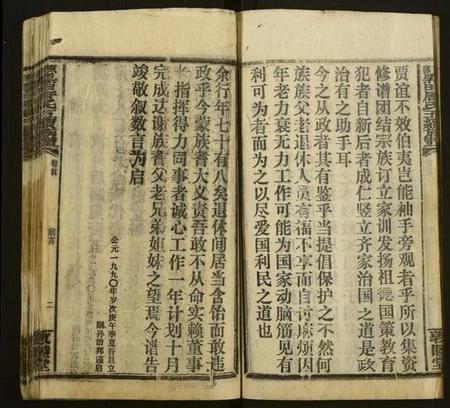 贾谊不效伯夷岂能袖手旁观者乎所以集资
修谱团结宗族订立家训发扬祖德国策教育
犯者自新后者成仁竖立齐家治国之道是政
治有之助手耳
今之从政者其有鉴乎当提倡保护之不然何
族族父老退休人员有福不享而自讨麻烦因
年老力衰无力工作可能为国家动脑筋见有
利可为者而为之以尽爱国利民之道也
余行年七十有八矣退休闲居当含饴而敢违
政乎今蒙族耆大义责吾敢不从命实赖董事
指挥得力同事者诚心工作一年计划十月
完成达谢族耆父老兄弟姐妹之望焉今谱告
竣敬叙数言为启
公元一九九〇年岁次庚午季夏谷旦立
嗣孙治邦谨启
卷首
前言
二
敦睦堂